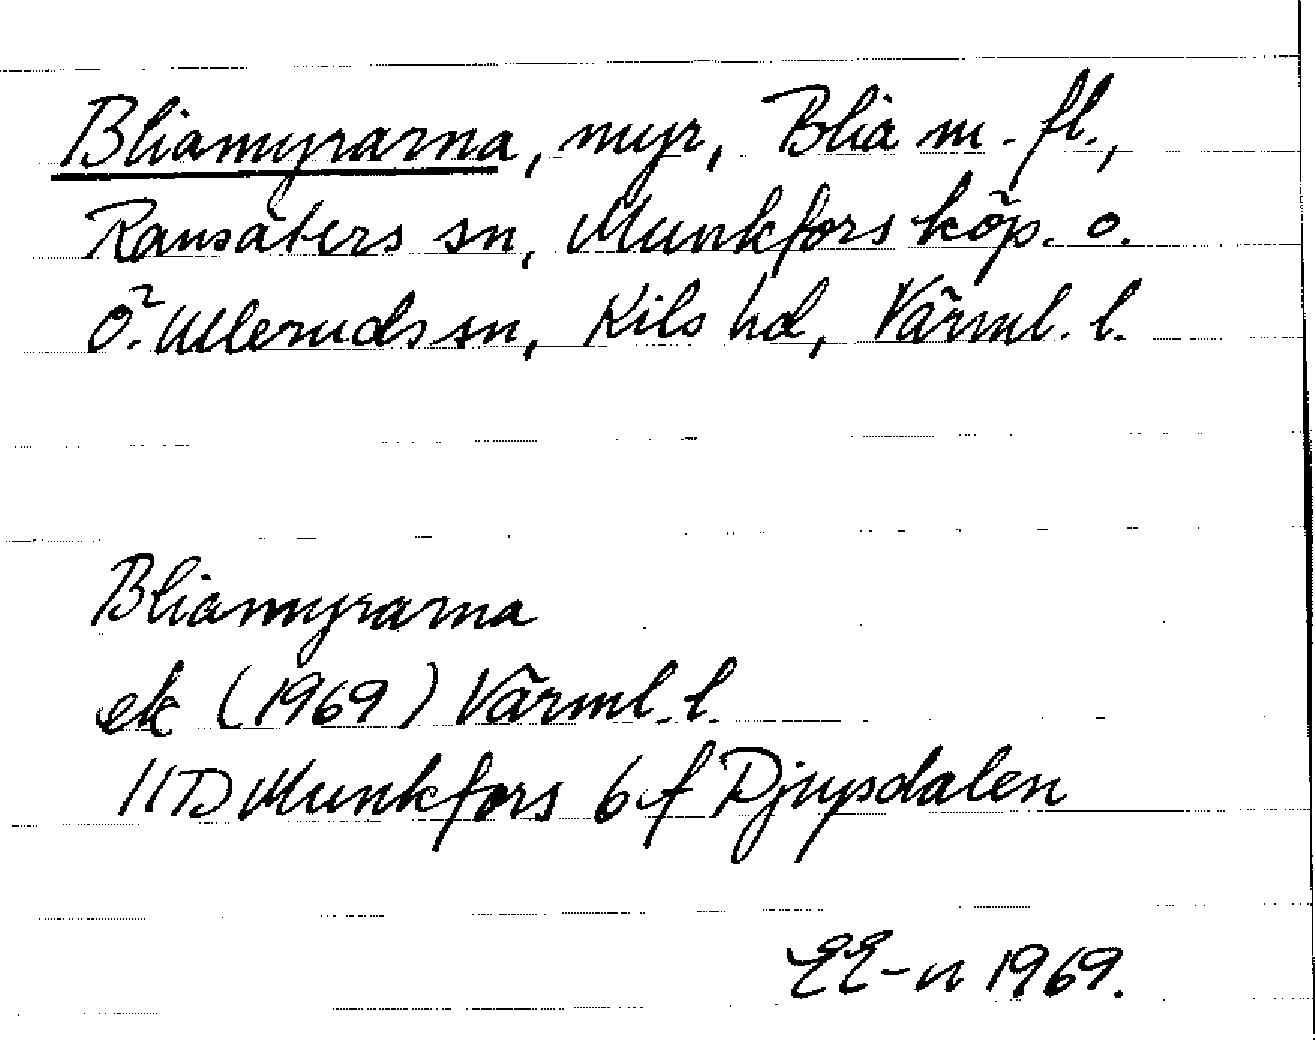 Bliamyrarna, myr, Blia m. fl.,
Ransäters sn, Munkfors köp. o.
Ö. Ulleruds sn, Kils hd, Värml. l.
Bliamyrarna
ek (1969) Värml. l.
11D Munkfors 6 f Djupsdalen
EE-n 1969.